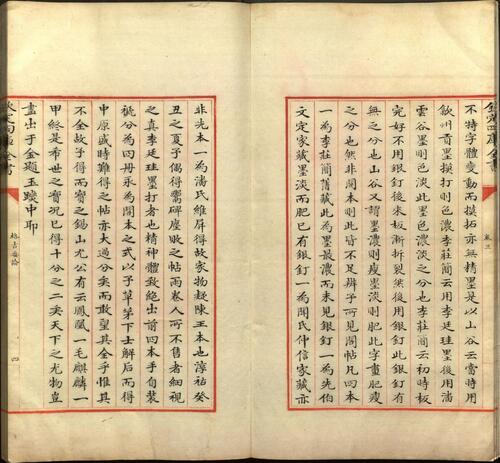 欽定四庫全書
卷三
不特字體變動而摸拓亦無精墨是以山谷云當時用
歙州貢墨摸打則色濃李莊簡云用李廷珪墨後用潘
雲谷墨則色淡此墨色濃淡之分也李莊簡云初時板
完好不用銀釘後來板漸拆裂然後用銀釘此銀釘有
無之分也山谷又謂墨濃則瘦墨淡則肥此字畫肥瘦
之分也然非閣本則此皆不足辨予所見閣帖凡四本
一為李莊簡舊藏此為墨最濃而未見銀釘一為先伯
文定家藏墨淡而肥已有銀釘一為閣氏仲信家藏亦
非先本一為潘氏維屏得故家物疑陳王本也淳祐癸
丑之夏予偶得嚮碑塵敗之帖兩卷人所不售者細視
之真李廷珪墨打者也精神體致絕出前四本手自裝
褫分為四冊承為閣本之式以予草茅下士解后而得
中原盛時難得之帖亦大過分矣而敢望其全乎惟其
不全故予得而寶之錫山尤公有云鳳凰一毛麒麟一
甲終是希世之寳况已得十分之二矣天下之尤物豈
盡出于金題玉躞中耶
欽定四庫全書
趙吉士論
四